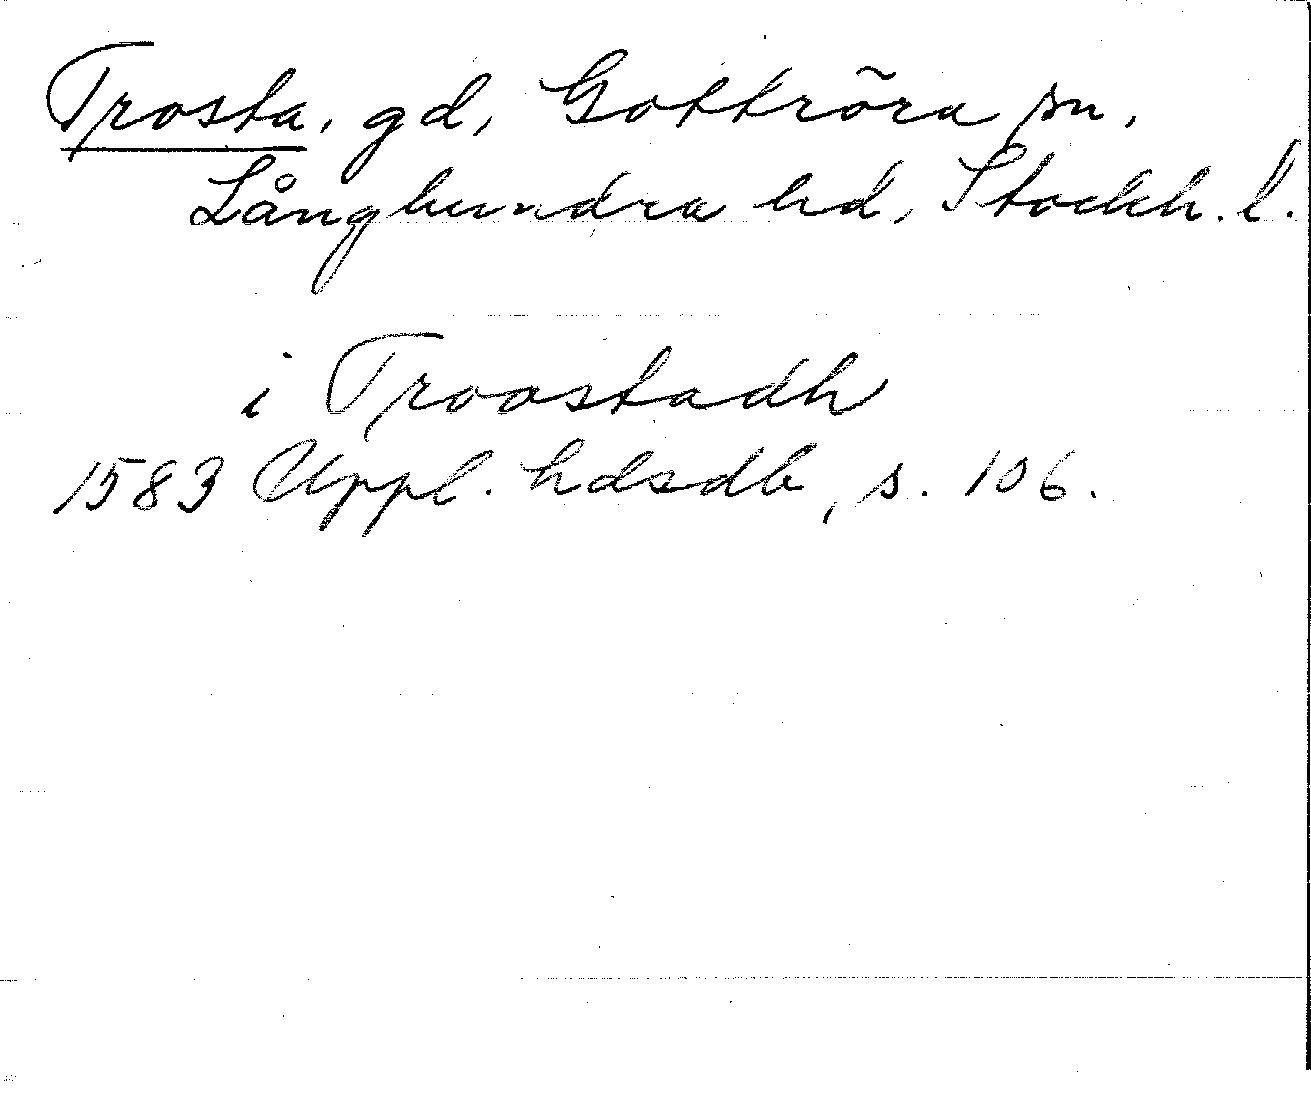 Trosta, gd, Gottröra sn,
Långhundra hd, Stockh. l.
i Troostadh
1583 Uppl. hdsdb, s. 106.